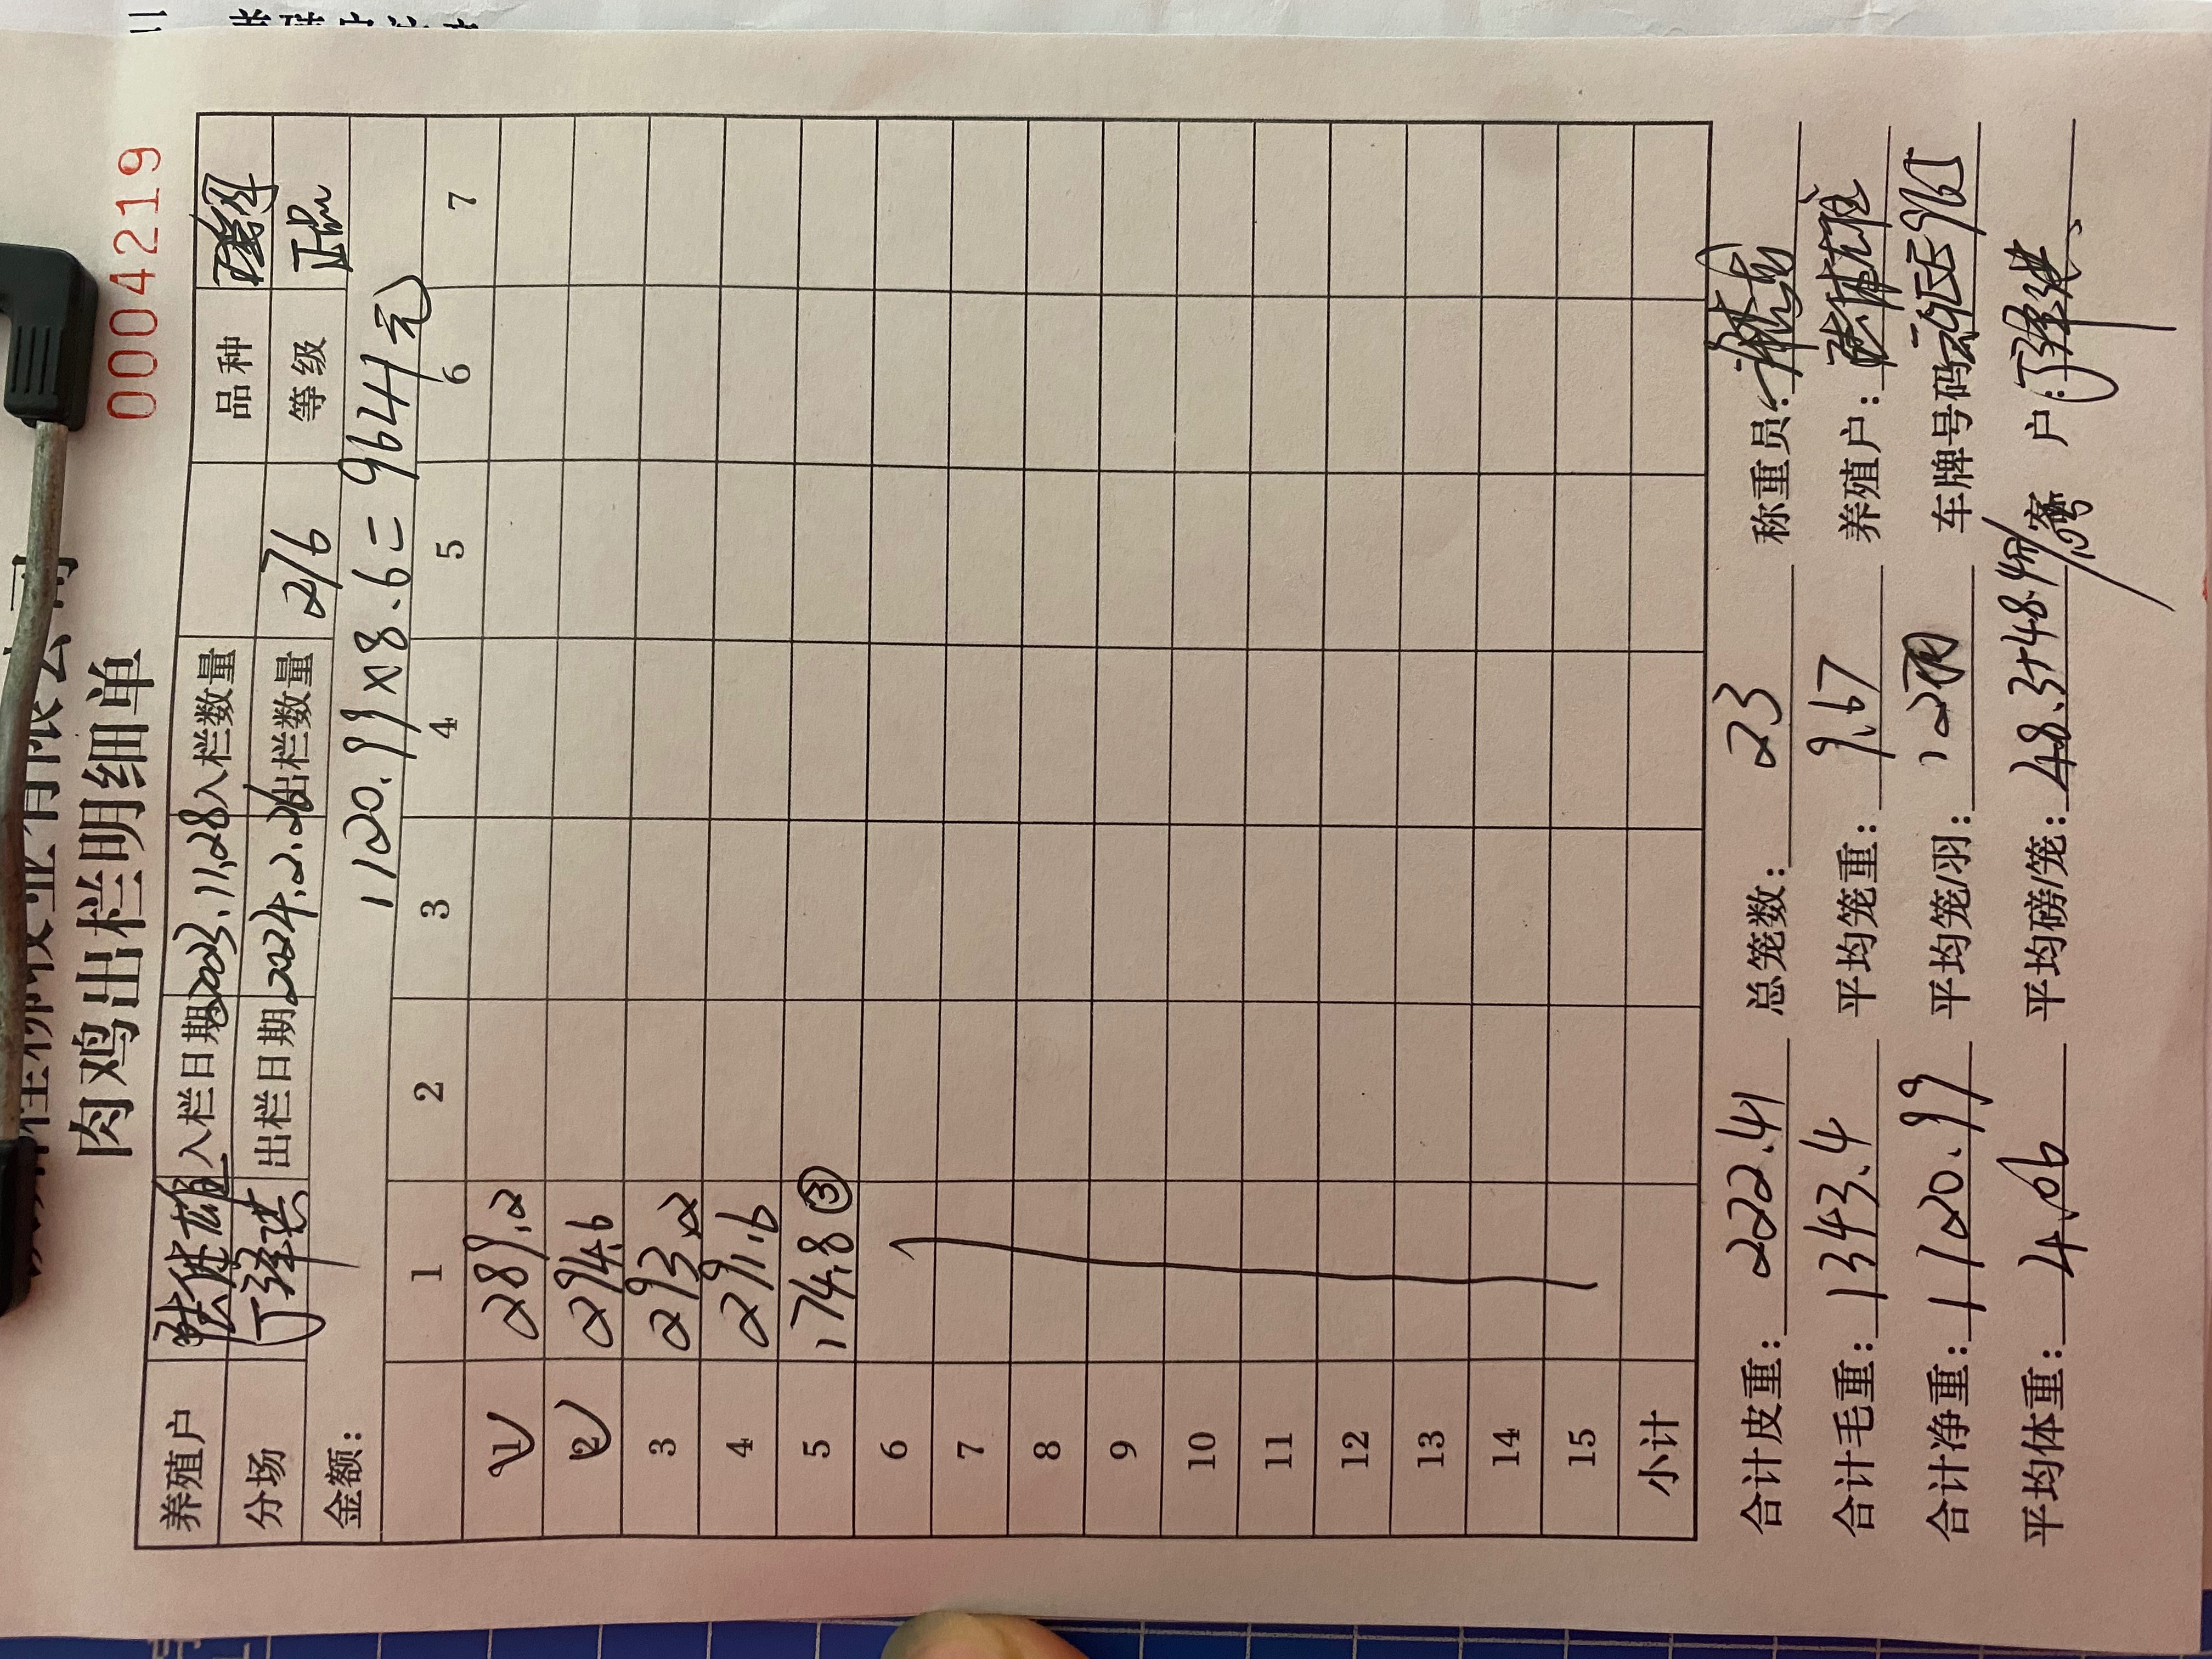 肉鸡出栏明细单
0004219
养殖户 入栏日期 2023.11.28 入栏数量 品种
分场 丁泽洪 出栏日期 2024.2.26 出栏数量 276 等级 正品
金额: 1120.99×8.6=9641元
1 2 3 4 5 6 7
1 289.2
2 294.6
3 293.2
4 291.6
5 174.8 ③
6
7
8
9
10
11
12
13
14
15
小计
合计皮重: 222.41 总笼数: 23 称重员:
合计毛重: 1343.4 平均笼重: 9.67 养殖户:
合计净重: 1120.99 平均笼/羽: 12羽 车牌号码:
平均体重: 4.06 平均磅/笼: 48.3+48.4 客户: 丁泽洪